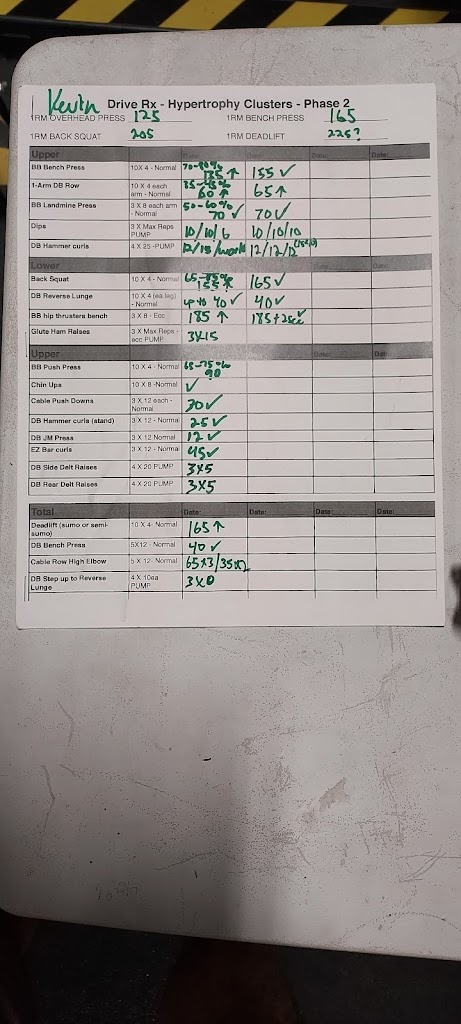 Kevin Drive Rx - Hypertrophy Clusters - Phase 2
1RM OVERHEAD PRESS 125 1RM BENCH PRESS 165
1RM BACK SQUAT 205 1RM DEADLIFT 225?
Upper Date:
BB Bench Press 10X 4 - Normal 70-80% 135 ↑ 155 ✓
1-Arm DB Row 10 X 4 each arm - Normal 60 ↑ 65 ↑
BB Landmine Press 3 X 8 each arm - Normal 50-60% 70 ✓ 70 ✓
Dips 3 X Max Reps PUMP 10/10/6 10/10/10
DB Hammer curls 4 X 25 -PUMP 12/12/12
Lower
Back Squat 10 X 4 - Normal 155 165 ✓
DB Reverse Lunge 10 X 4 (ea leg) - Normal up to 40 ✓ 40 ✓
BB hip thrusters bench 3 X 8 - Ecc 185 ↑ 185 + 2sec
Glute Ham Raises 3 X Max Reps - ecc PUMP 3X15
Upper
BB Push Press 10 X 4 - Normal 65-75% 90
Chin Ups 10 X 8 - Normal ✓
Cable Push Downs 3 X 12 each - Normal 70 ✓
DB Hammer curls (stand) 3 X 12 - Normal 25 ✓
DB JM Press 3 X 12 Normal 12 ✓
EZ Bar curls 3 X 12 - Normal 45 ✓
DB Side Delt Raises 4 X 20 PUMP 3X5
DB Rear Delt Raises 4 X 20 PUMP 3X5
Total Date: Date: Date: Date:
Deadlift (sumo or semi-sumo) 10 X 4- Normal 165 ↑
DB Bench Press 5X12 - Normal 40 ✓
Cable Row High Elbow 5 X 12- Normal 65X3/35X2
DB Step up to Reverse Lunge 4 X 10ea PUMP 3X0